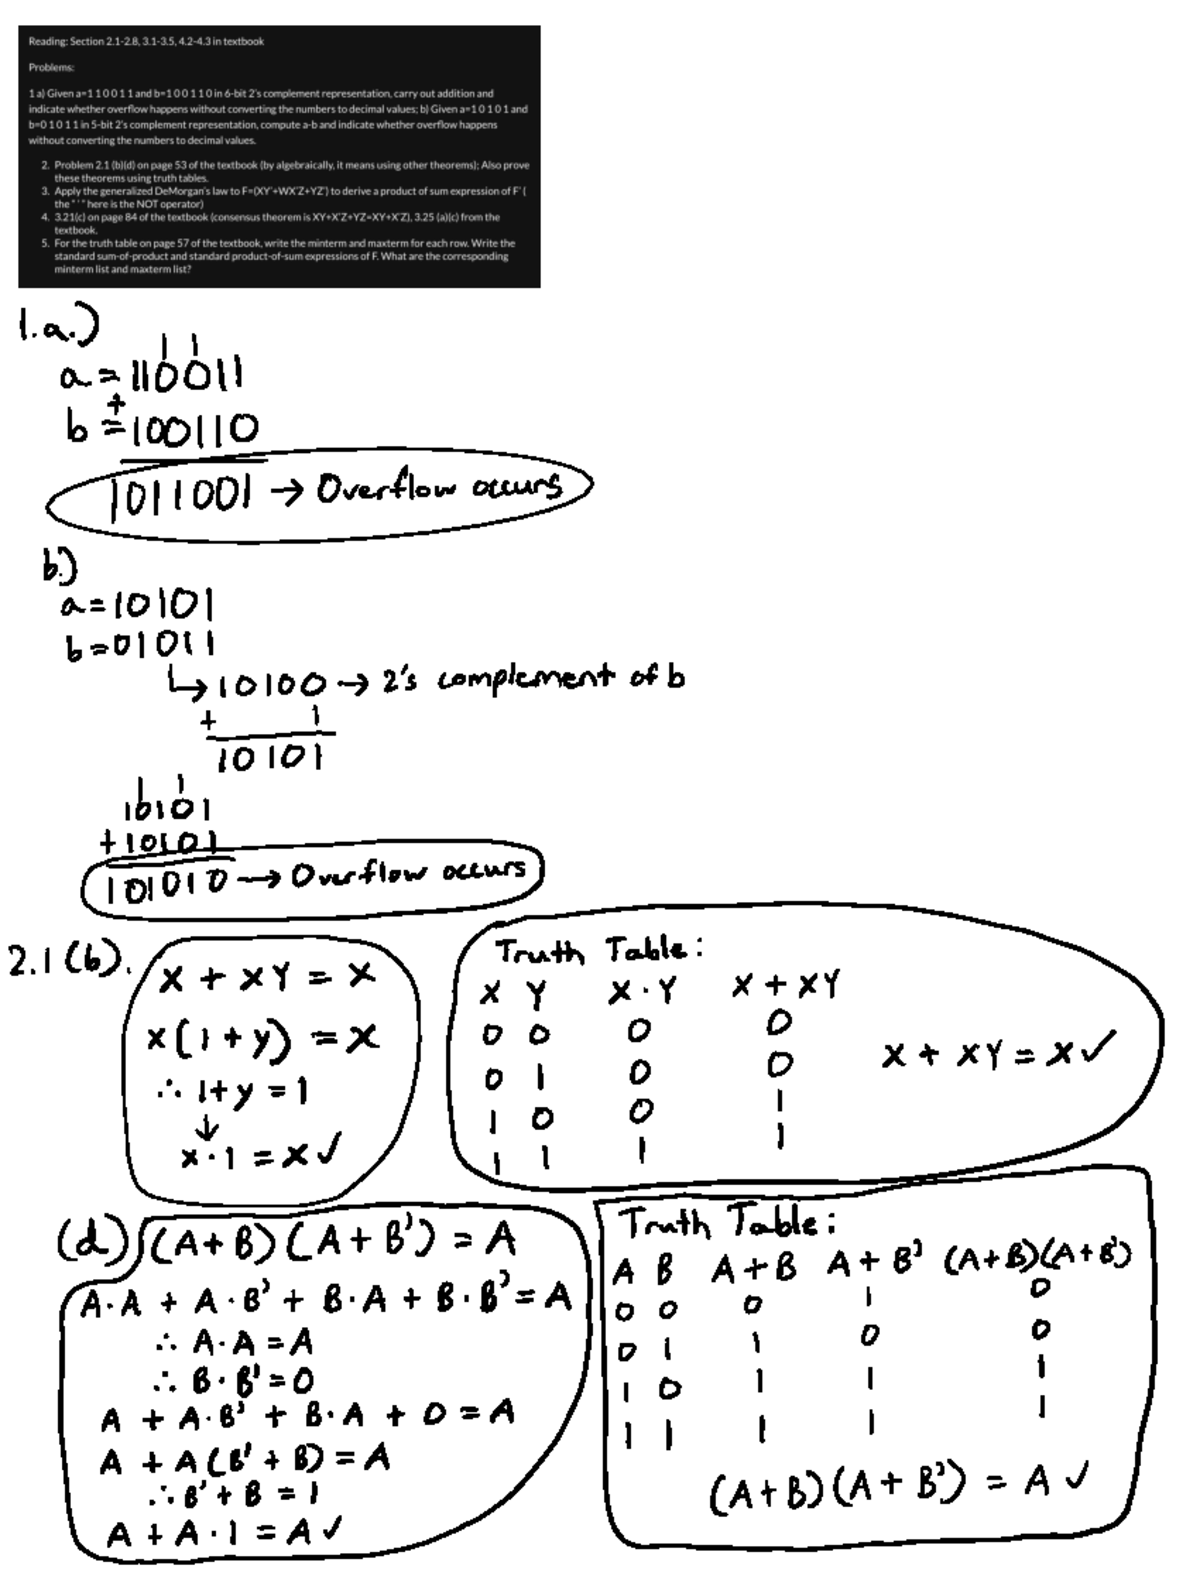 Reading: Section 2.1-2.8, 3.1-3.5, 4.2-4.3 in textbook
Problems:
1 a) Given a=1 1 0 0 1 1 and b=1 0 0 1 1 0 in 6-bit 2's complement representation, carry out addition and
indicate whether overflow happens without converting the numbers to decimal values; b) Given a=1 0 1 0 1 and
b=0 1 0 1 1 in 5-bit 2's complement representation, compute a-b and indicate whether overflow happens
without converting the numbers to decimal values.
2. Problem 2.1 (b)(d) on page 53 of the textbook (by algebraically, it means using other theorems); Also prove
these theorems using truth tables.
3. Apply the generalized DeMorgan's law to F=(XY'+WX'Z+YZ') to derive a product of sum expression of F' (
the " ' " here is the NOT operator)
4. 3.21(c) on page 84 of the textbook (consensus theorem is XY+X'Z+YZ=XY+X'Z), 3.25 (a)(c) from the
textbook.
5. For the truth table on page 57 of the textbook, write the minterm and maxterm for each row. Write the
standard sum-of-product and standard product-of-sum expressions of F. What are the corresponding
minterm list and maxterm list?
1.a.)
1 1
a = 110011
+
b = 100110
1011001 → Overflow occurs
b.)
a = 10101
b = 01011
↳ 10100 → 2's complement of b
+ 1
10101
1 1
10101
+ 10101
101010 → Overflow occurs
2.1 (b).
X + XY = X
X(1 + y) = X
∴ 1+y = 1
↓
x · 1 = x ✓
Truth Table:
X Y X · Y X + XY
0 0 0 0
0 1 0 0
1 0 0 1
1 1 1 1
X + XY = X ✓
(d) (A+B)(A+B') = A
A·A + A·B' + B·A + B·B' = A
∴ A·A = A
∴ B·B' = 0
A + A·B' + B·A + 0 = A
A + A(B' + B) = A
∴ B' + B = 1
A + A·1 = A ✓
Truth Table:
A B A+B A+B' (A+B)(A+B')
0 0 0 1 0
0 1 1 0 0
1 0 1 1 1
1 1 1 1 1
(A+B)(A+B') = A ✓